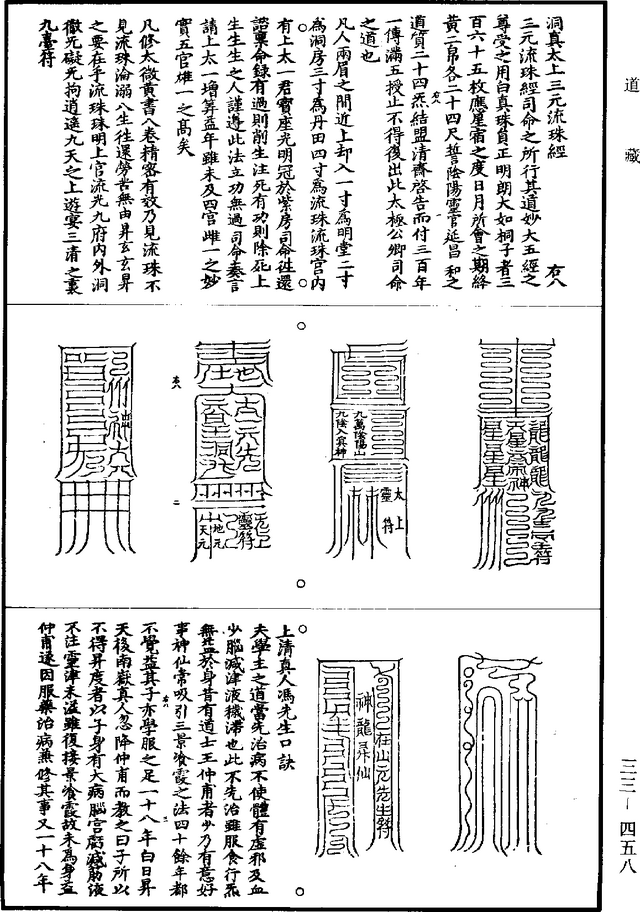 道藏
洞真太上三元流珠經 右八
三元流珠經司命之所行其道妙大五經之
尊受之用白真珠負正明朗大如桐子者三
百六十五枚應星宿之度日月所會之期絳
黃二帛各二十四尺誓陰陽靈官延昌和之
道質二十四炁結盟清齋啓告而付三百年
一傳滿五授止不得復出此太極公卿司命
之道也
凡人兩眉之間近上却入一寸爲明堂二寸
爲洞房三寸爲丹田四寸爲流珠流珠宮內
有上太一君寶座光明冠於紫房司命往還
諮稟命録有過則削生注死有功則除死上
生生生之人謹遵此法立功無過司命奏言
請上太一增筭益年雖未及四宮雌一之妙
實五宮雄一之高矣
凡修太微黃書八卷精密有效乃見流珠不
見流珠淪溺八生往還勞苦無由昇玄玄昇
之要在乎流珠珠明上宮流光九府內外洞
徹光礙无拘逍遙九天之上遊宴三清之裏
九臺符
太上
靈符
九萬陰陽山
九陰入冥神
山地元
山天元
在山元先生符
神龍昇仙
上清真人馮先生口訣
夫學生之道當先治病不使體有虛邪及血
少腦減津液穢滯也此不先治雖服食行炁
無益於身昔有道士王仲甫者少乃有意好
事神仙常吸引二景飡霞之法四十餘年都
不覺益其子亦學服之足一十八年白日昇
天後南嶽真人忽降仲甫而教之曰子所以
不得昇度者以子身有大病腦宮虧減筋液
不注靈津未溢雖復接景飡霞故未爲身益
仲甫遂因服藥治病兼修其事又一十八年
三三—四五八